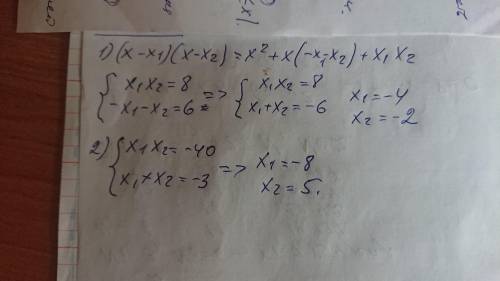 1) (x-x₁)(x-x₂) = x² + x(-x₁x₂) + x₁x₂
{ x₁x₂ = 8 => { x₁x₂ = 8 x₁ = -4
{ -x₁-x₂ = 6 { x₁+x₂ = -6 x₂ = -2
2) { x₁x₂ = -40 => x₁ = -8
{ x₁+x₂ = -3 x₂ = 5.